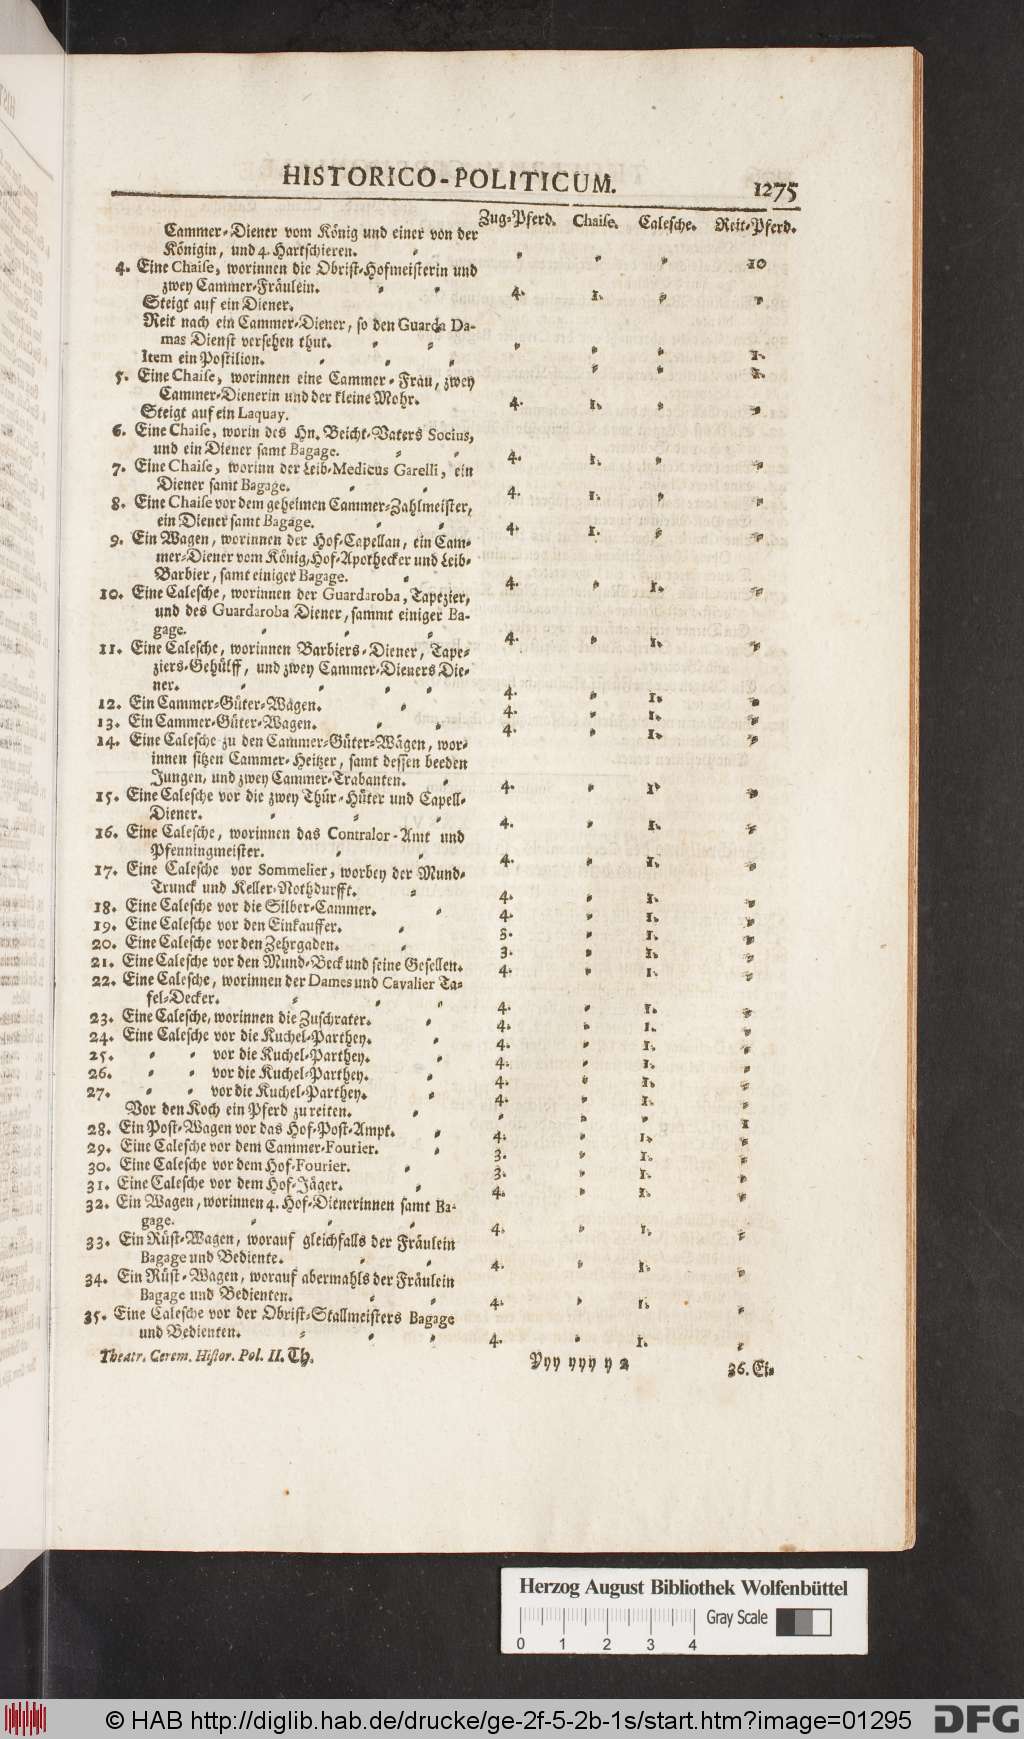 HISTORICO-POLITICUM. 1275
Zug-Pferd. Chaise. Calesche. Reit-Pferd.
Cammer-Diener vom König und einer von der
Königin, und 4. Hartschieren. 10
4. Eine Chaise, worinnen die Obrist-Hofmeisterin und
zwey Cammer-Fräulein. 4. 1.
Steigt auf ein Diener.
Reit nach ein Cammer-Diener, so den Guarda Da-
mas Dienst versehen thut. 1.
Item ein Postilion. 1.
5. Eine Chaise, worinnen eine Cammer-Frau, zwey
Cammer-Dienerin und der kleine Mohr. 4. 1.
Steigt auf ein Laquay.
6. Eine Chaise, worin des Hn. Beicht-Vaters Socius,
und ein Diener samt Bagage. 4. 1.
7. Eine Chaise, worinn der Leib-Medicus Garelli, ein
Diener samt Bagage. 4. 1.
8. Eine Chaise vor dem geheimen Cammer-Zahlmeister,
ein Diener samt Bagage. 4. 1.
9. Ein Wagen, worinnen der Hof-Capellan, ein Cam-
mer-Diener vom König, Hof-Apothecker und Leib-
Barbier, samt einiger Bagage. 4. 1.
10. Eine Calesche, worinnen der Guardaroba, Tapezier,
und des Guardaroba Diener, sammt einiger Ba-
gage. 4. 1.
11. Eine Calesche, worinnen Barbiers-Diener, Tape-
ziers-Gehülff, und zwey Cammer-Dieners Die-
ner. 4. 1.
12. Ein Cammer-Güter-Wagen. 4. 1.
13. Ein Cammer-Güter-Wagen. 4. 1.
14. Eine Calesche zu den Cammer-Güter-Wägen, wor-
innen sitzen Cammer-Heitzer, samt dessen beeden
Jungen, und zwey Cammer-Trabanten. 4. 1.
15. Eine Calesche vor die zwey Thür-Hüter und Capell-
Diener. 4. 1.
16. Eine Calesche, worinnen das Contralor-Amt und
Pfenningmeister. 4. 1.
17. Eine Calesche vor Sommelier, worbey der Mund-
Trunck und Keller-Nothdurfft. 4. 1.
18. Eine Calesche vor die Silber-Cammer. 4. 1.
19. Eine Calesche vor den Einkauffer. 3. 1.
20. Eine Calesche vor den Zehrgaden. 3. 1.
21. Eine Calesche vor den Mund-Beck und seine Gesellen. 4. 1.
22. Eine Calesche, worinnen der Dames und Cavalier Ta-
fel-Decker. 4. 1.
23. Eine Calesche, worinnen die Zuschrater. 4. 1.
24. Eine Calesche vor die Kuchel-Parthey. 4. 1.
25. vor die Kuchel-Parthey. 4. 1.
26. vor die Kuchel-Parthey. 4. 1.
27. vor die Kuchel-Parthey. 4. 1.
Vor den Koch ein Pferd zu reiten. 1
28. Ein Post-Wagen vor das Hof-Post-Ampt. 4. 1.
29. Eine Calesche vor dem Cammer-Fourier. 3. 1.
30. Eine Calesche vor dem Hof-Fourier. 3. 1.
31. Eine Calesche vor dem Hof-Jäger. 4. 1.
32. Ein Wagen, worinnen 4. Hof-Dienerinnen samt Ba-
gage. 4. 1.
33. Ein Rüst-Wagen, worauf gleichfalls der Fräulein
Bagage und Bediente. 4. 1.
34. Ein Rüst-Wagen, worauf abermahls der Fräulein
Bagage und Bedienten. 4. 1.
35. Eine Calesche vor der Obrist-Stallmeisters Bagage
und Bedienten. 4. 1.
Theatr. Cerem. Histor. Pol. II. Th. Yyy yyy y 2 36. Ei-
Herzog August Bibliothek Wolfenbüttel
Gray Scale
0 1 2 3 4
© HAB http://diglib.hab.de/drucke/ge-2f-5-2b-1s/start.htm?image=01295 DFG